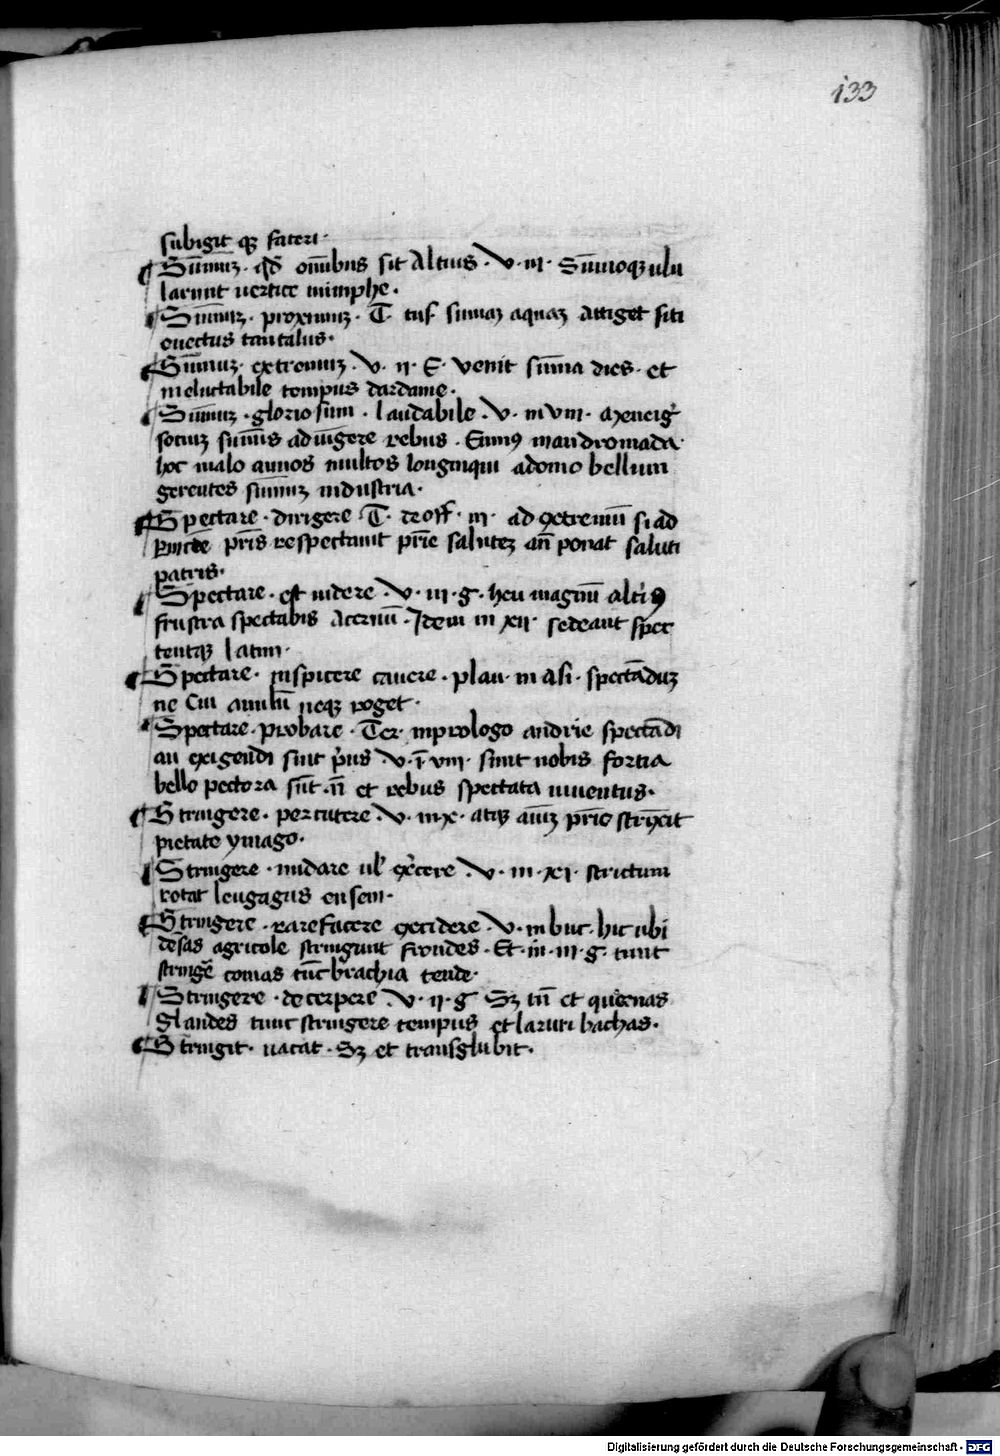 133
subigit qꝫ fateri·
Sūmuꝫ· qđ omībus sit Altius· v· iii· Sūmoqꝫ ulu
larunt uertice nimphe·
Sūmuꝫ· proximuꝫ· T· tus̄ sūmaꝫ aquaꝫ Attiget siti
euectus tantalus·
Sūmuꝫ· extremuꝫ· v· ii· E· venit sūma dies· et
ineluctabile tempus dardanie·
Sūmuꝫ· gloriosum· laudabile· v· in viii·
sotiuꝫ sūmis adiūgere rebus· Ennꝰ in andromada
hoc malo annos multos longinqui adomo bellum
gerentes sūmuꝫ industria·
Spectare· dirigere T· de off̄· iii· ad ꝯtremū si ad
ꝑnicie pr̄is respectauit pr̄ie saluteꝫ an̄ ponat saluti
patris·
Spectare· est uidere· v· iii· g· heu magnū altiꝰ
frustra spectabis Aceruū· Idem in xii· sedeant spec
tentqꝫ latini·
Spectare· inspicere cauere· plau· in asi· spectāduꝫ
ne Cui anulū neqꝫ roget·
Spectare· probare· Ter· inprologo andrie spectādi
an exigendi sint pꝰus v· ī viii· sunt nobis fortia
bello pectora sūt ·n̄ et rebus spectata iuuentus·
Stringere· percutere· v· in x· atqꝫ aīuꝫ pr̄ie strīxit
pietate ymago·
Stringere· nudare ul' exercere· v· in· xi· strictum
rotat leugagus ensem·
Stringere· rarefacere ꝯcidere· v· in buc· hic ubi
dēsas agricole stringunt frondes· Et· in· iii· g· tunt
stringē comas tūc brachia tende·
Stringere· decerpere v· ii· g Sꝫ tn̄ et quernas
Glandes tunc stringere tempus et lauri bachas·
Stringit· uacat· Sꝫ et transglubit·
Digitalisierung gefördert durch die Deutsche Forschungsgemeinschaft - DFG